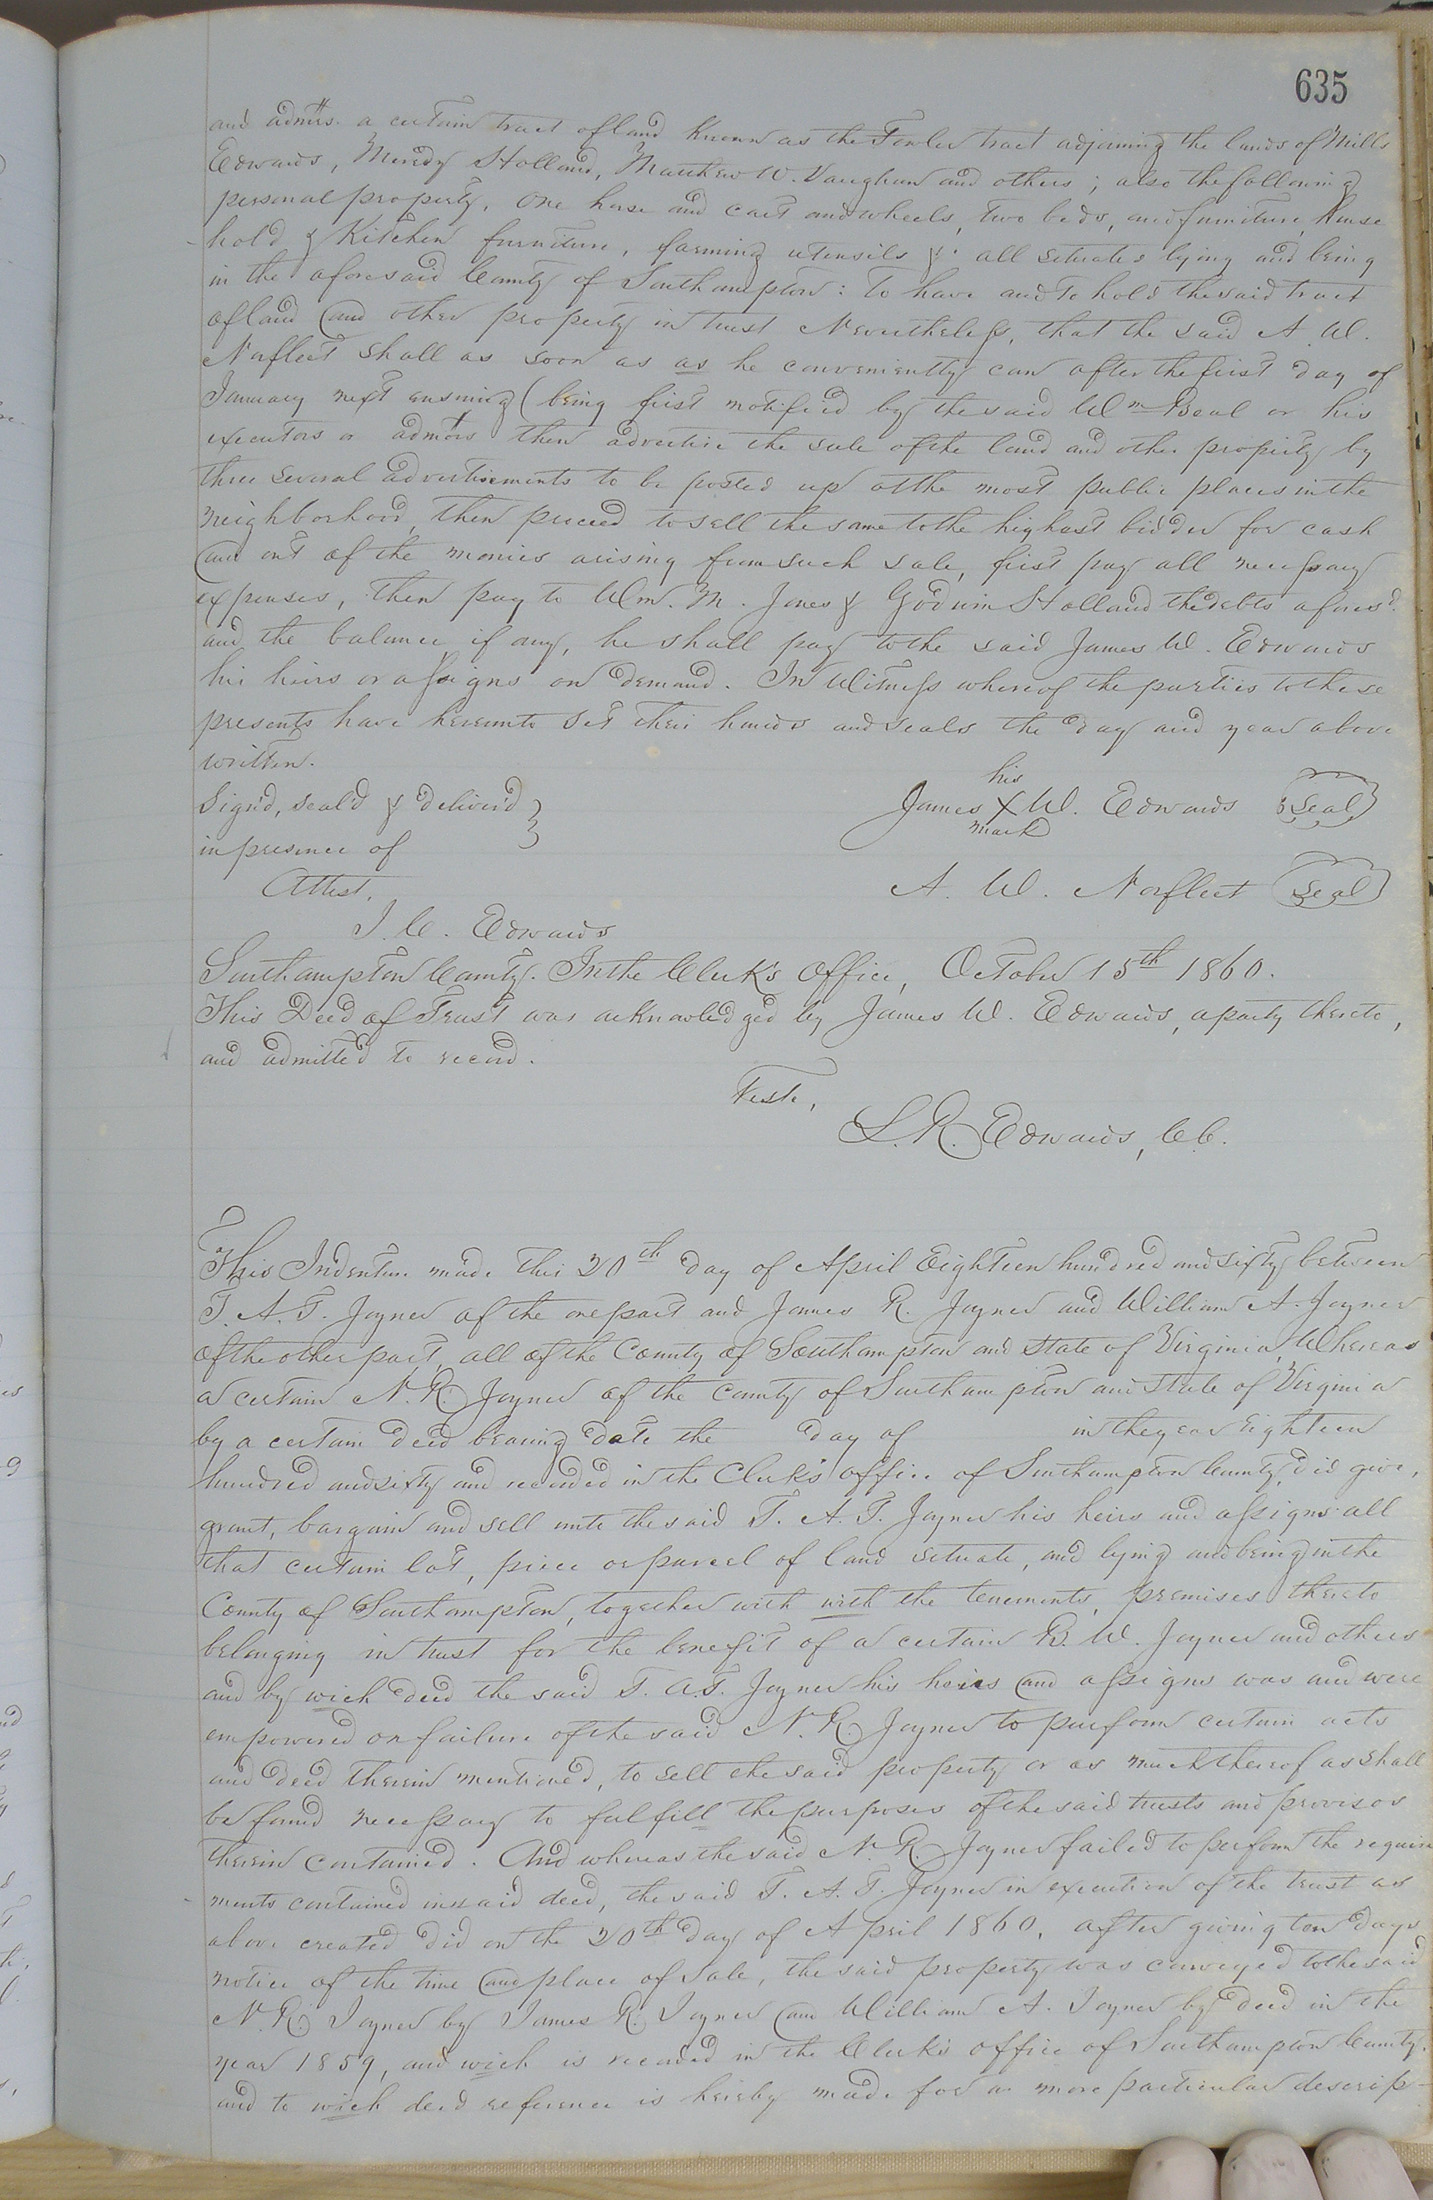 635
and admrs. a certain tract of land known as the Fowler tract adjoining the lands of Mills
Edwards, Meredy Holland, Matthew W. Vaughan and others; also the following
personal property, One horse and cart and wheels, two beds, and furniture, house
hold & Kitchen furniture, farming utensils &c all situate lying and being
in the aforesaid County of Southampton: To have and to hold the said tract
of land and other property in trust Nevertheless, that the said A. W.
Norfleet shall as soon as as he conveniently can after the first day of
January next ensuing (being first notified by the said Wm Beal or his
executors or admtors then advertise the sale of the land and other property by
three several advertisements to be posted up at the most public places in the
neighborhood, then proceed to sell the same to the highest bidder for cash
and out of the monies arising from such sale, first pay all necessary
expenses, then pay to Wm. M. Jones & Godwin Holland the debts aforesd.
and the balance if any, he shall pay to the said James W. Edwards
his heirs or assigns on demand. In Witness whereof the parties to these
presents have hereunto set their hands and seals the day and year above
written.
Sign'd, seal'd & deliver'd
in presence of
Attest,
J. C. Edwards
his
James X W. Edwards Seal
mark
A. W. Norfleet Seal
Southampton County. In the Clerk's Office, October 15th 1860.
This Deed of Trust was acknowledged by James W. Edwards, a party thereto,
and admitted to record.
Teste,
L. R. Edwards, C.C.
This Indenture made this 20th day of April Eighteen hundred and sixty between
T. A. T. Joyner of the one part and James R. Joyner and William A. Joyner
of the other part, all of the County of Southampton and State of Virginia, Whereas
a certain N. R. Joyner of the County of Southampton and State of Virginia
by a certain deed bearing date the day of in the year Eighteen
hundred and sixty and recorded in the Clerk's office of Southampton County, did give,
grant, bargain and sell unto the said T. A. T. Joyner his heirs and assigns all
that certain lot, piece or parcel of land situate, and lying and being in the
County of Southampton, together with with the tenements, premises thereto
belonging in trust for the benefit of a certain B. W. Joyner and others
and by wich deed the said T. A. T. Joyner his heirs and assigns was and were
empowered on failure of the said N. R. Joyner to perform certain acts
and deed therein mentioned, to sell the said property or as much thereof as shall
be found necessary to fulfill the purposes of the said trusts and provisos
therein contained. And whereas the said N. R. Joyner failed to perform the require
ments contained in said deed, the said T. A. T. Joyner in execution of the trust as
above created did on the 20th day of April 1860, after giving ten days
notice of the time and place of sale, the said property was conveyed to the said
N. R. Joyner by James R. Joyner and William A. Joyner by deed in the
year 1859, and wich is recorded in the Clerk's office of Southampton County.
and to wich deed reference is hereby made for a more particular descrip-